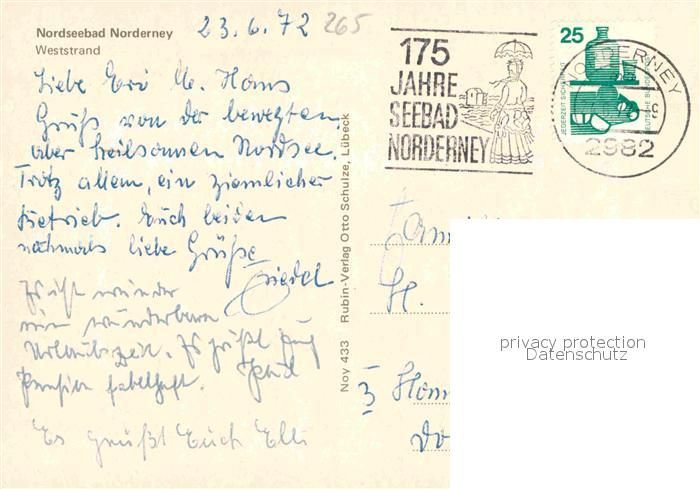 Nordseebad Norderney
Weststrand
23.6.72
265
Liebe Evi u. Hans
Grüße von der bewegten
aber heilsamen Nordsee.
Trotz allem, ein ziemlicher
Betrieb. Euch beiden
nochmals liebe Grüße
Friedel
Es ist wieder
eine wunderbare
Urlaubszeit. Es grüßt
Pension fabelhaft.
Es grüßt Euch Elli
Noy 433 Rubin-Verlag Otto Schulze, Lübeck
175
JAHRE
SEEBAD
NORDERNEY
25
JEDERZEIT SICHERHEIT
DEUTSCHE BUNDESPOST
NORDERNEY
c
2982
Fam
H.
3 Hann
Do
privacy protection
Datenschutz